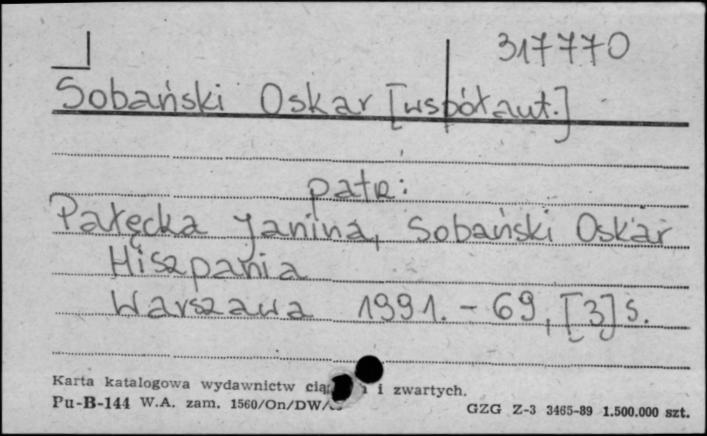 317770
Sobański Oskar [współaut.]
patrz:
Pałęcka Janina, Sobański Oskar
Hiszpania
Warszawa 1991. - 69, [3] s.
Karta katalogowa wydawnictw i zwartych.
Pu-B-144 W.A. zam. 1560/On/DW/
GZG Z-3 3465-89 1.500.000 szt.